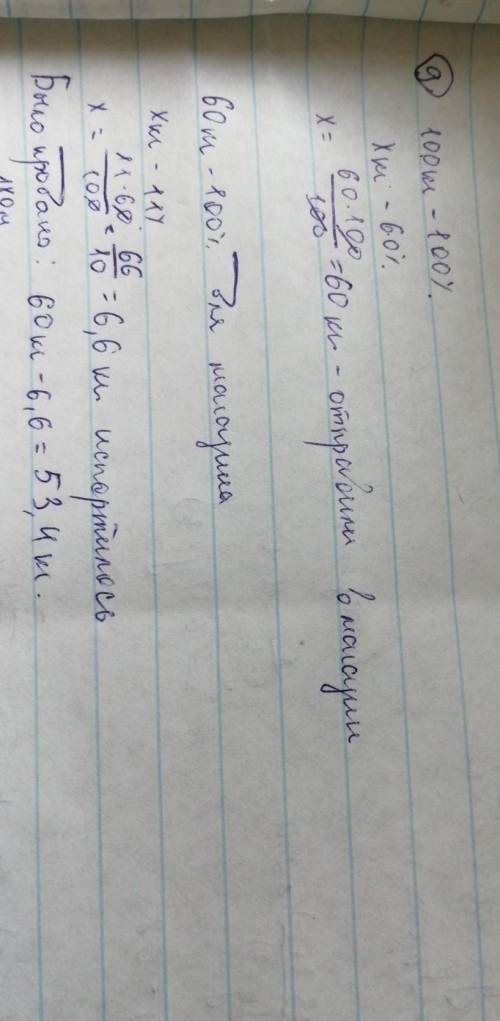 9) 100кг - 100%.
Хкг - 60%.
x = 60·100 / 100 = 60 кг - отправили в магазин
60кг - 100% для магазина
Хкг - 11%
x = 11·60 / 100 = 66 / 10 = 6,6 кг испортилось
Было продано: 60кг - 6,6 = 53,4 кг.